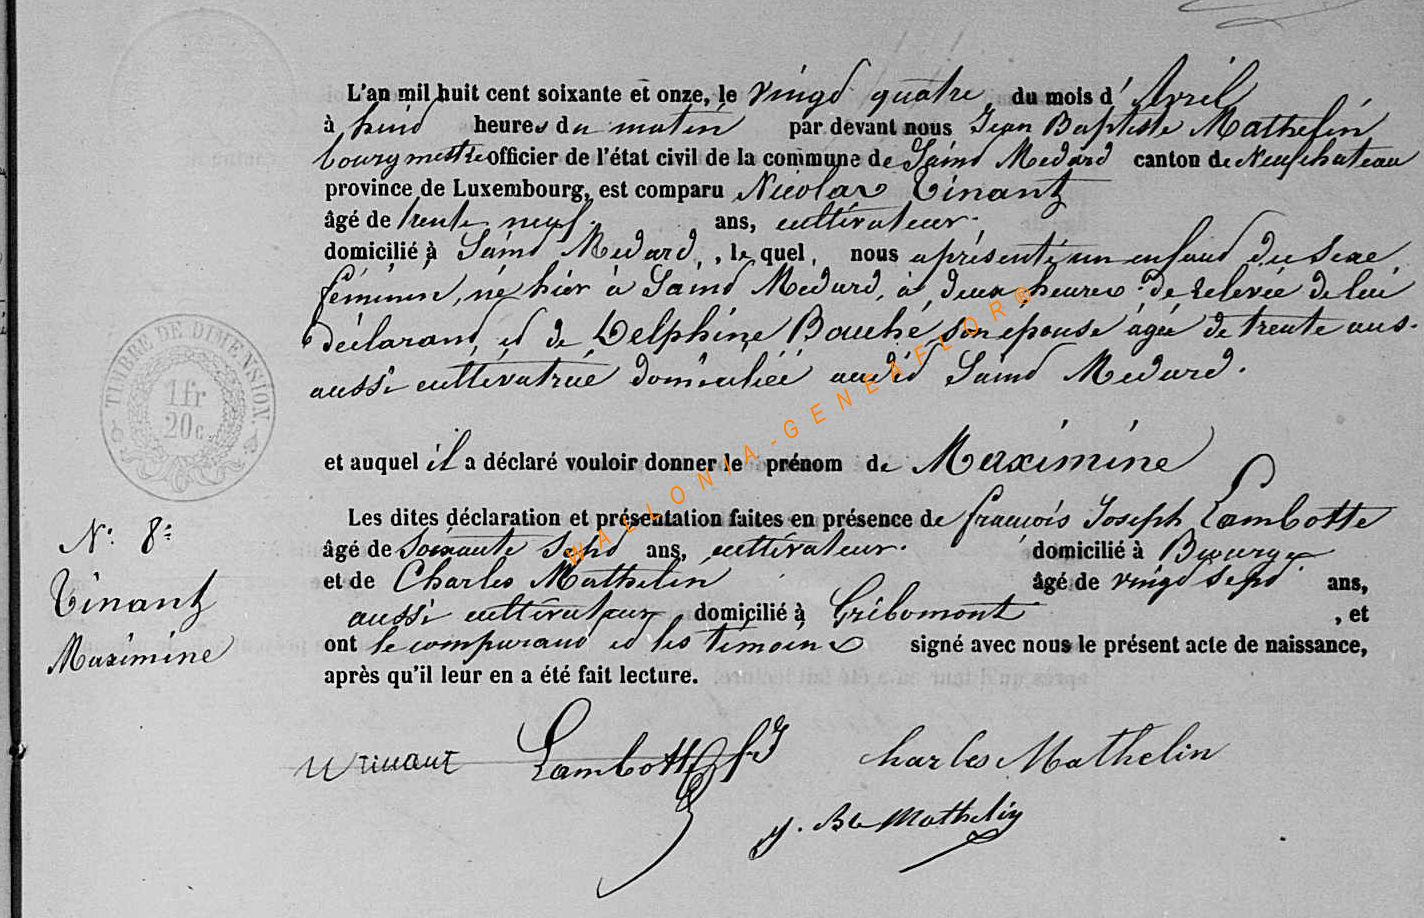 L'an mil huit cent soixante et onze, le vingd quatre du mois d' Avril
à huid heures du matin par devant nous Jean Baptiste Mathelin
bourgmestre officier de l'état civil de la commune de Saind Medard canton de Neufchateau
province de Luxembourg, est comparu Nicolas Tinant
âgé de trente neuf ans, cultivateur.
domicilié à Saind Medard, le quel, nous a présenté un enfand du sexe
féminin, né hier à Saind Medard, à deux heures de relevée de lui
déclarand, et de Delphine Bouché, son epouse agée de trente ans.
aussi cultivatrice domiciliée audid Saind Medard.
et auquel il a déclaré vouloir donner le prénom de Maximine
Les dites déclaration et présentation faites en présence de françois Joseph Lambotte
âgé de soixante sepd ans, cultivateur. domicilié à
et de Charles Mathelin âgé de vingd sepd ans,
aussi cultivateur domicilié à Gribomont , et
ont le comparand et les témoins signé avec nous le présent acte de naissance,
après qu'il leur en a été fait lecture.
TIMBRE DE DIMENSION.
1 fr
20 c.
N° 8
Tinant
Maximine
N Tinant Lambotte f J Charles Mathelin
J. Bte Mathelin
WALLONIA-GENEAFLOR®